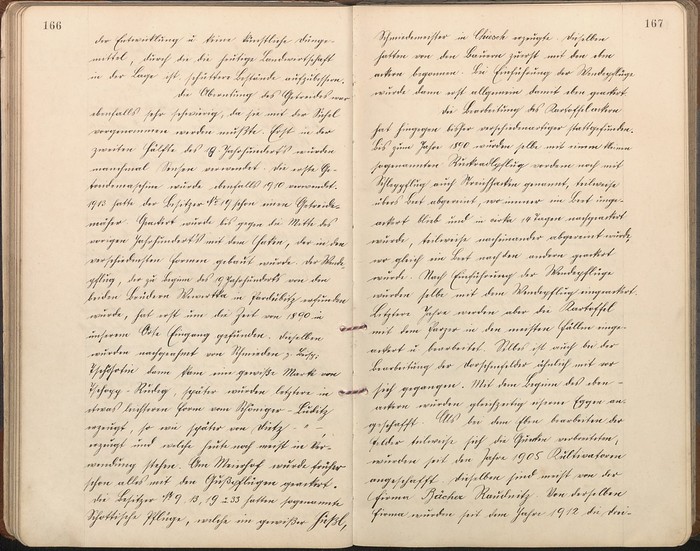 166
der Entwicklung u keine künstliche Dünge-
mittel, durch die die heutige Landwirtschaft
in der Lage ist, schüttere Bestände aufzubessern.
Die Aberntung des Getreides war
ebenfalls sehr schwierig, da sie mit der Sichel
vorgenommen werden mußte. Erst in der
zweiten Hälfte des 19 Jahrhunderts wurden
manchmal Sensen verwendet. Die erste Ge-
treidemaschine wurde ebenfalls 1910 verwendet.
1913 hatte der Besitzer No 19 schon einen Getreide-
mäher. Geackert wurde bis gegen die Mitte des
vorigen Jahrhunderts mit dem Haken, der in den
verschiedensten Formen gebaut wurde. Der Wende-
pflug, der zu Beginn des 19 Jahrhunderts von den
beiden Brüdern Wewerka in Pardubitz erfunden
wurde, hat erst um die Zeit von 1890 in
unserem Orte Eingang gefunden. Dieselben
wurden nachgeahmt von Schmieden z. Beisp.
dann kam eine gewisse Marke von
später wurden letztere in
etwas leichteren Form vom Schöniger - Liebitz
erzeugt, so wie später von Dietz - " -
erzeugt und welche heute noch meist in Ver-
wendung stehen. Am Meierhof wurde früher
schon alles mit den Gußpflügen geackert.
Die Besitzer No 9, 13, 19 u 33 hatten sogenannte
Schottische Pflüge, welche ein gewisser
167
Schmiedemeister in erzeugte. Dieselben
hatten von den Bauern zuerst mit den
ackern begonnen. Bei Einführung der Wendepflüge
wurde dann erst allgemein damit geackert
Die Bearbeitung des Kartoffelackern
hat hingegen bisher verschiedenartiger stattgefunden.
Bis zum Jahre 1890 wurden selbe mit einem kleinen
sogenannten Ruckradlpflug vordem noch mit
Schleppflug auch genannt, teilweise
übers Beet abgeräumt, wo immer ein Beet unge-
ackert blieb und in cirka 14 Tagen nachgeackert
wurde, teilweise nacheinander abgeräumt wurde,
wo gleich ein Beet nach den andern geackert
wurde. Nach Einführung der Wendepflüge
wurden selbe mit dem Wendepflug eingeackert.
Letztere Jahre werden aber die Kartoffel
mit dem in den meisten Fällen einge-
ackert u bearbeitet. Alles ist auch bei der
Bearbeitung der ähnlich mit vor
sich gegangen. Mit dem Beginn des eben-
ackern wurden gleichzeitig eiserne Eggen an-
geschafft. Als bei dem Eben bearbeiten der
Felder teilweise sich die
wurden seit dem Jahre 1905 Kultivatoren
angeschafft. Dieselben sind meist von der
Firma Bächer Raudnitz. Von derselben
Firma wurden seit dem Jahre 1912 die drei-